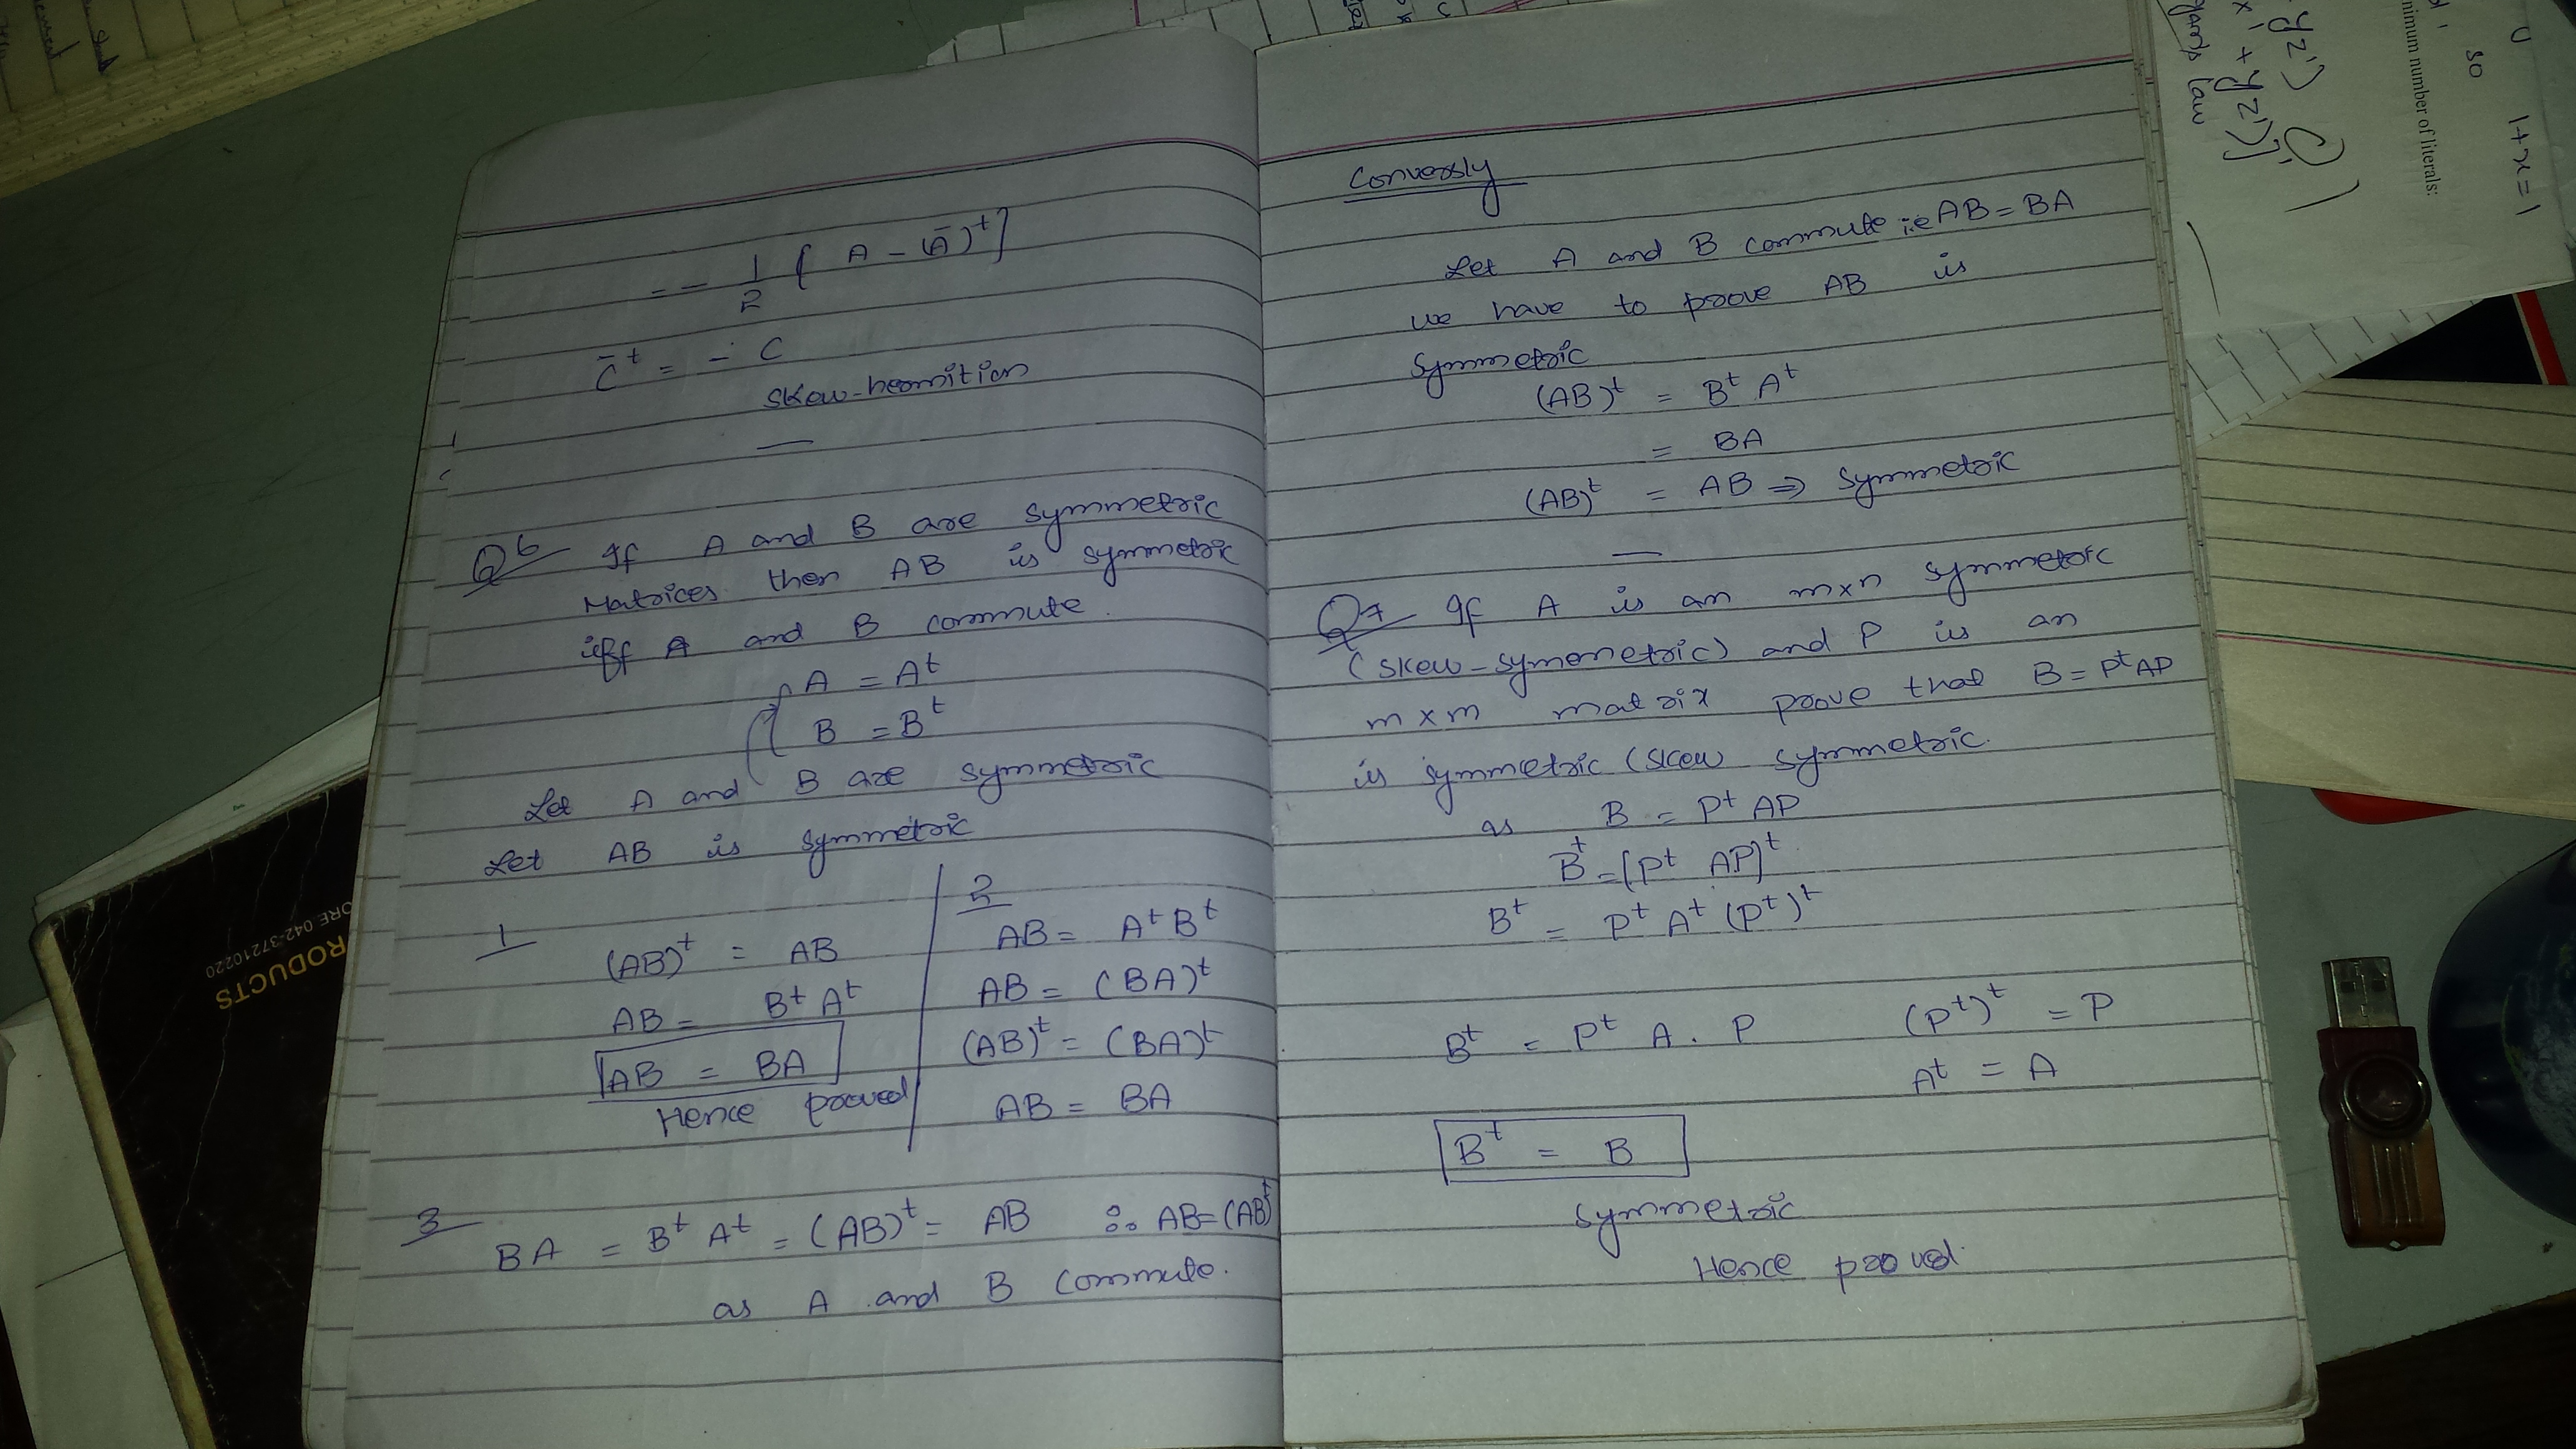 = - 1/2 [ A - (Ā)^t ]
C̄^t = - C
Skew-hermition
Q6 If A and B are symmetric
Matrices then AB is symmetric
iff A and B commute.
A = A^t
B = B^t
Let A and B are symmetric
Let AB is symmetric
1
(AB)^t = AB
AB = B^t A^t
AB = BA
Hence proved
2
AB = A^t B^t
AB = (BA)^t
(AB)^t = (BA)^t
AB = BA
3
BA = B^t A^t = (AB)^t = AB ∵ AB=(AB)^t
as A and B commute.
Conversly
Let A and B commute i.e AB=BA
we have to prove AB is
symmetric
(AB)^t = B^t A^t
= BA
(AB)^t = AB ⇒ symmetric
Q7 If A is an m×n symmetric
(skew-symmetric) and P is an
m×m matrix prove that B=P^tAP
is symmetric (skew symmetric.
as B = P^t AP
B^t = [P^t AP]^t
B^t = P^t A^t (P^t)^t
B^t = P^t A . P (P^t)^t = P
A^t = A
B^t = B
symmetric
Hence proved.
RODUCTS
ORE 042-37210220
1+x=1
so
nimum number of literals:
law